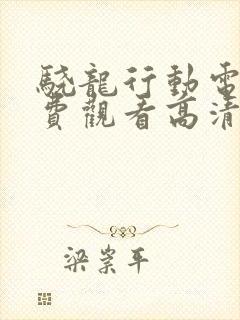 驍龍行動電
費觀看高清
梁崇平